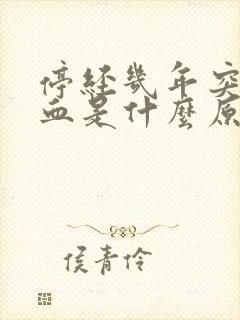 停经几年突
血是什麼原
侯青伶